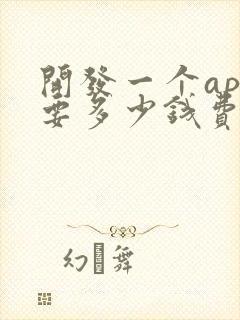 開發一个ap
要多少錢費
幻舞